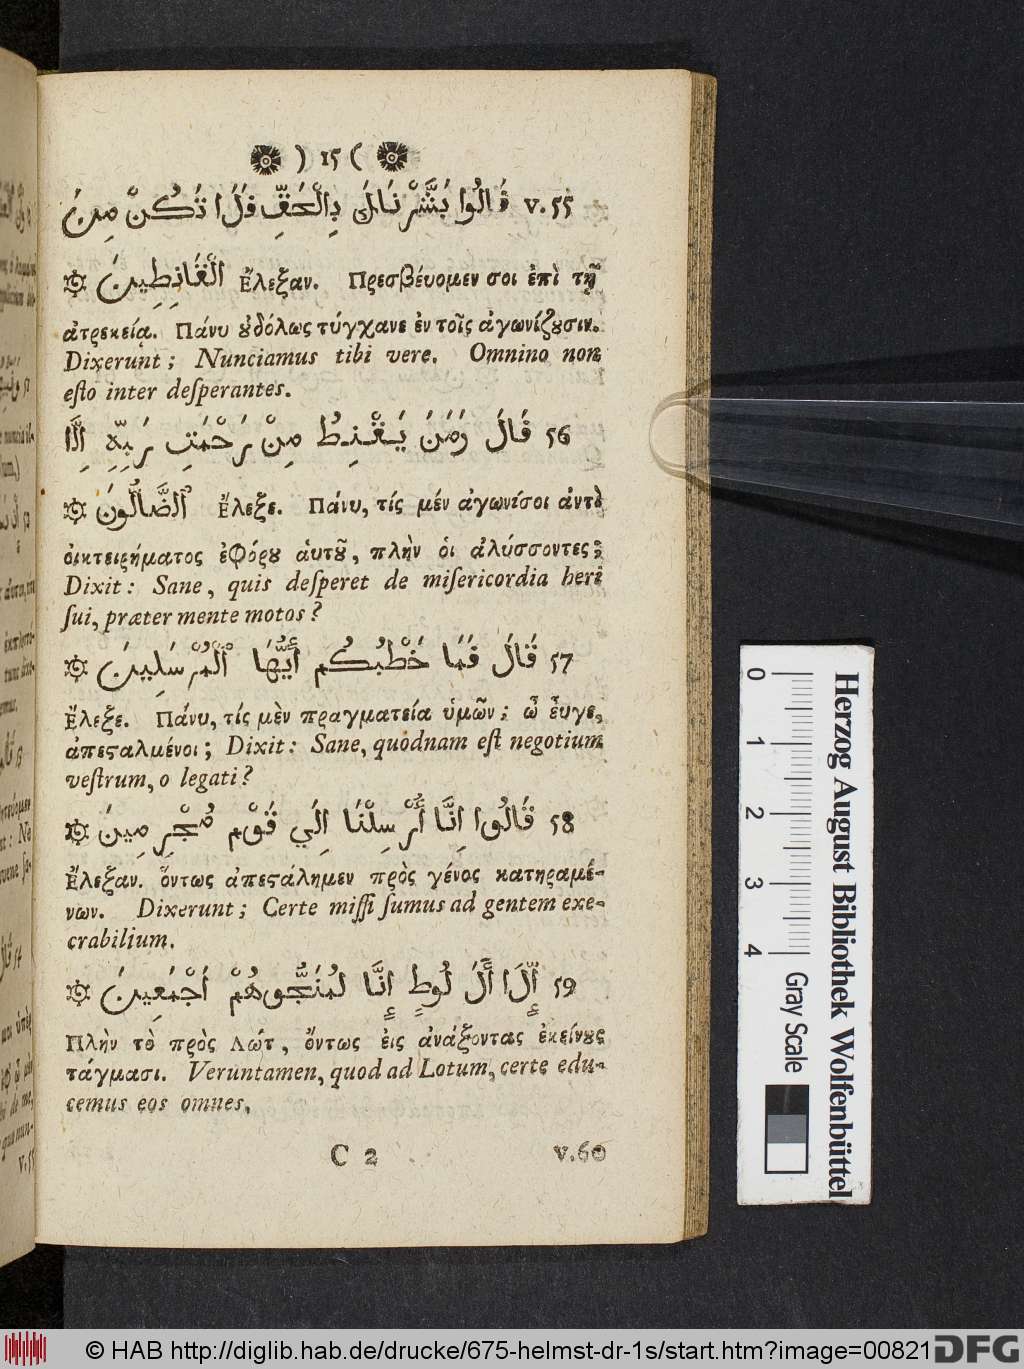 ) 15 (
v.55 قَالُوا بَشَّرْنَاكَ بِالْحَقِّ فَلَا تَكُنْ مِنَ
الْقَانِطِينَ Ἔλεξαν. Πρεσβέυομεν σοι ἐπὶ τῇ
ἀτρεκείᾳ. Πάνυ ȣ̓δόλως τύγχανε ἐν τοῖς ἀγωνίζȣσιν.
Dixerunt; Nunciamus tibi vere. Omnino non
eſto inter deſperantes.
56 قَالَ وَمَنَ يَقْنِطُ مِنْ رَحْمَتِ رَبِّهِ اِلَّا
اُلضَّالُّونَ Ἔλεξε. Πάνυ, τίς μέν ἀγωνίσοι ἀντὶ
ὀικτειρήματος ἐφόρȣ ἁυτȣ͂, πλὴν ὁι ἀλύσσοντες;
Dixit: Sane, quis deſperet de miſericordia heri
ſui, præter mente motos?
57 قَالَ فَمَا خَطْبُكُم أَيُّهَا اْلْمُرْسَلِينَ
Ἔλεξε. Πάνυ, τίς μὲν πραγματεία ὑμῶν; ὦ ἔυγε,
ἀπεςαλμένοι; Dixit: Sane, quodnam eſt negotium
veſtrum, o legati?
58 قَالُوا اِنَّا أُرْسِلْنَا اِلَي قَوْم مُجْرِمِينَ
Ἔλεξαν. ὄντως ἀπεςάλημεν πρὸς γένος κατηραμέ-
νων. Dixerunt; Certe miſſi ſumus ad gentem exe-
crabilium.
59 إِلَّا أَلَ لُوطٍ إِنَّا لَمُنَجُّوهُمْ اَجْمَعِينَ
Πλὴν τὸ πρὸς Λώτ, ὄντως ἐις ἀνάξοντας ἐκείνȣς
τάγμασι. Veruntamen, quod ad Lotum, certe edu-
cemus eos omnes.
C 2 v.60
Herzog August Bibliothek Wolfenbüttel
0 1 2 3 4 Gray Scale
© HAB http://diglib.hab.de/drucke/675-helmst-dr-1s/start.htm?image=00821
DFG